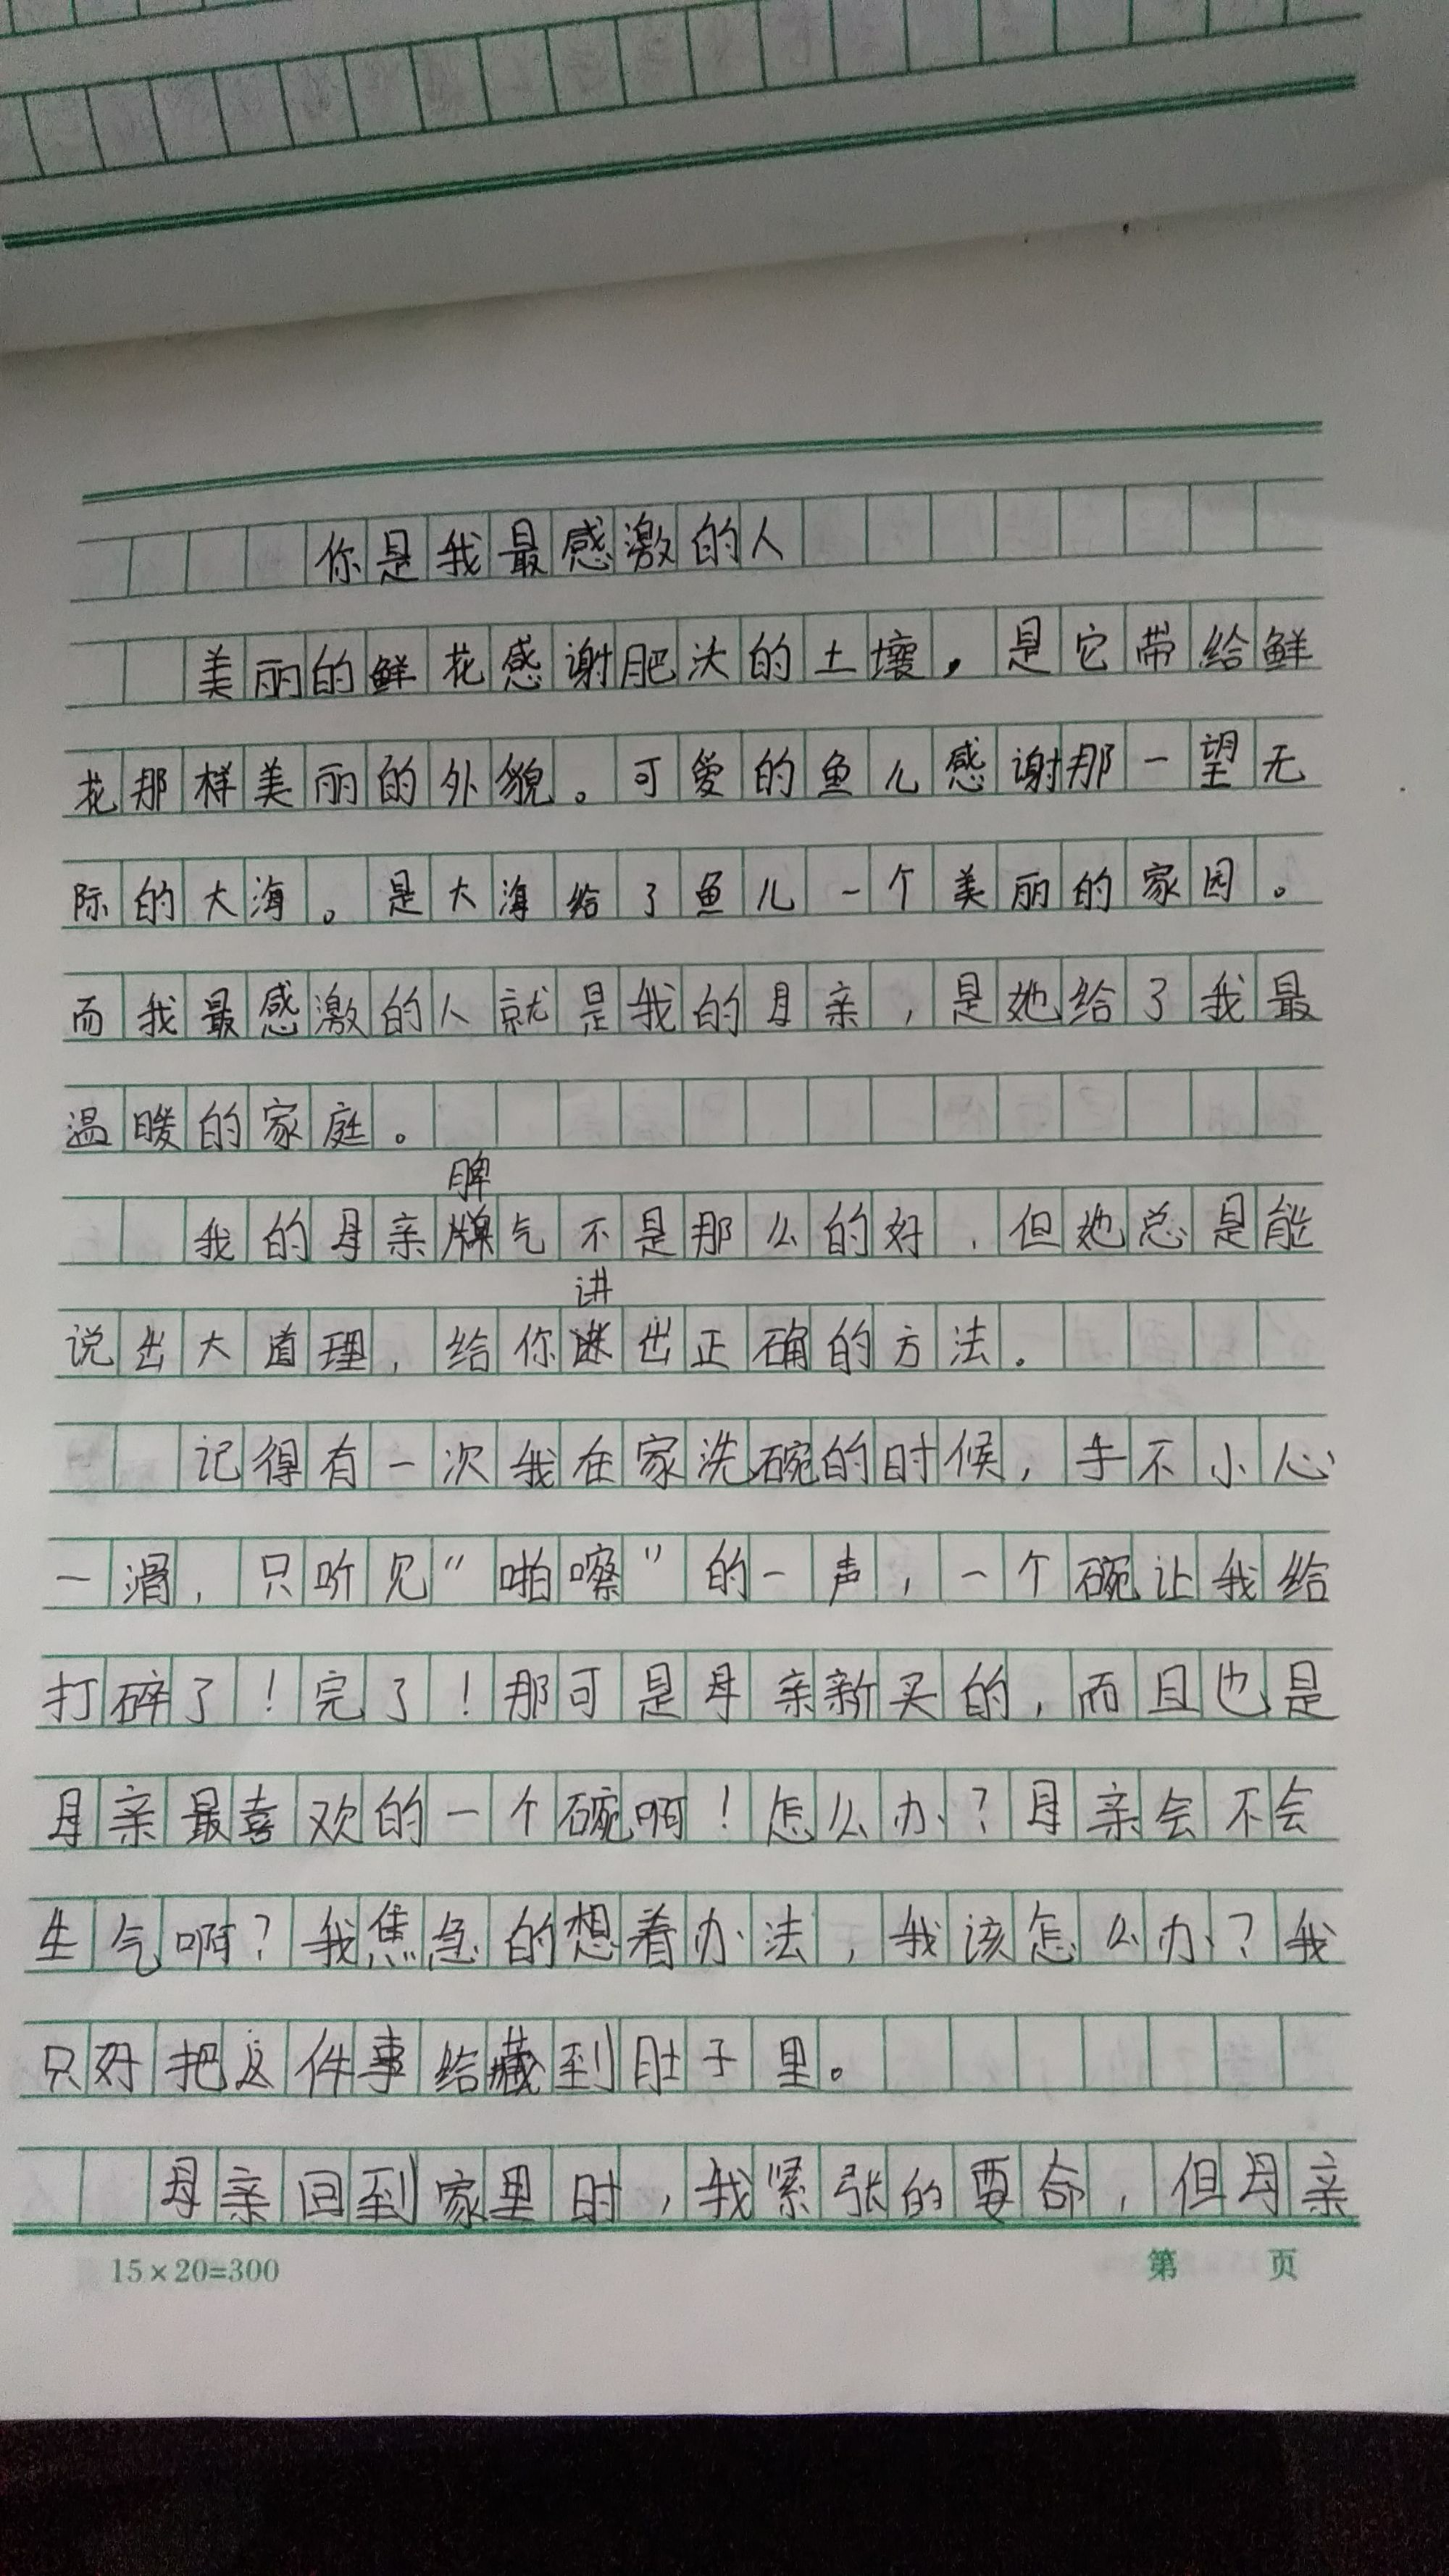 你是我最感激的人
美丽的鲜花感谢肥沃的土壤，是它带给鲜
花那样美丽的外貌。可爱的鱼儿感谢那一望无
际的大海。是大海给了鱼儿一个美丽的家园。
而我最感激的人就是我的母亲，是她给了我最
温暖的家庭。
我的母亲脾气不是那么的好，但她总是能
说出大道理，给你讲出正确的方法。
记得有一次我在家洗碗的时候，手不小心
一滑，只听见“啪嚓”的一声，一个碗让我给
打碎了！完了！那可是母亲新买的，而且也是
母亲最喜欢的一个碗啊！怎么办？母亲会不会
生气啊？我焦急的想着办法，我该怎么办？我
只好把这件事给藏到肚子里。
母亲回到家里时，我紧张的要命，但母亲
15×20=300
第 页